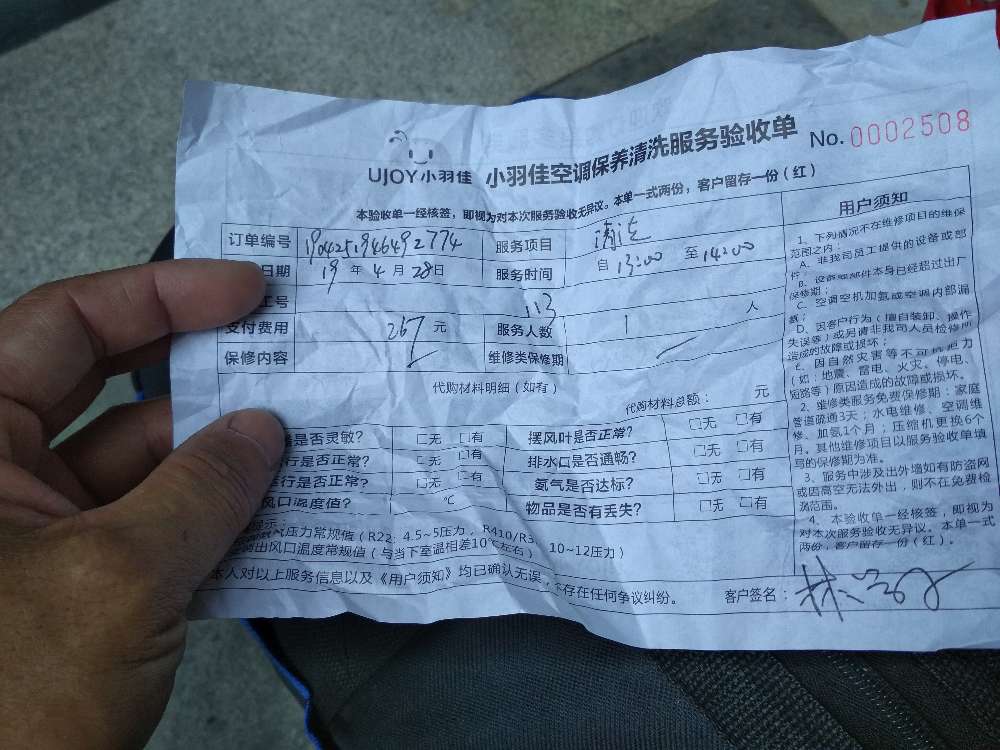 UJOY小羽佳 小羽佳空调保养清洗服务验收单 No.0002508
本验收单一经核签，即视为对本次服务验收无异议。本单一式两份，客户留存一份（红）
订单编号 1904251946492774 服务项目 清洗
日期 19 年 4 月 28日 服务时间 自 13:00 至 14:00
工号 113
支付费用 267 元 服务人数 1 人
保修内容 维修类保修期
代购材料明细（如有） 代购材料总额： 元
是否灵敏？ □无 □有 摆风叶是否正常？ □无 □有
行是否正常？ □无 □有 排水口是否通畅？ □无 □有
行是否正常？ □无 □有 氨气是否达标？ □无 □有
风口温度值？ ℃ 物品是否有丢失？ □无 □有
提示：
气压力常规值（R22：4.5~5压力，R410/R3 10~12压力）
出风口温度常规值（与当下室温相差10℃左右）
本人对以上服务信息以及《用户须知》均已确认无误，不存在任何争议纠纷。 客户签名：
用户须知
1、下列情况不在维修项目的维保
范围之内：
A、非我司员工提供的设备或部
件；
B、设备或部件本身已经超过出厂
保修期；
C、空调空机加氨或空调内部漏
氨；
D、因客户行为（擅自装卸、操作
失误等）或另请非我司人员检修所
造成的故障或损坏；
E、因自然灾害等不可抗拒力
（如：地震、雷电、火灾、停电、
短路等）原因造成的故障或损坏。
2、维修类服务免费保修期：家庭
管道疏通3天；水电维修、空调维
修、加氨1个月；压缩机更换6个
月。其他维修项目以服务验收单填
写的保修期为准。
3、服务中涉及出外墙如有防盗网
或因高空无法外出，则不在免费检
测范围。
4、本验收单一经核签，即视为
对本次服务验收无异议。本单一式
两份，客户留存一份（红）。